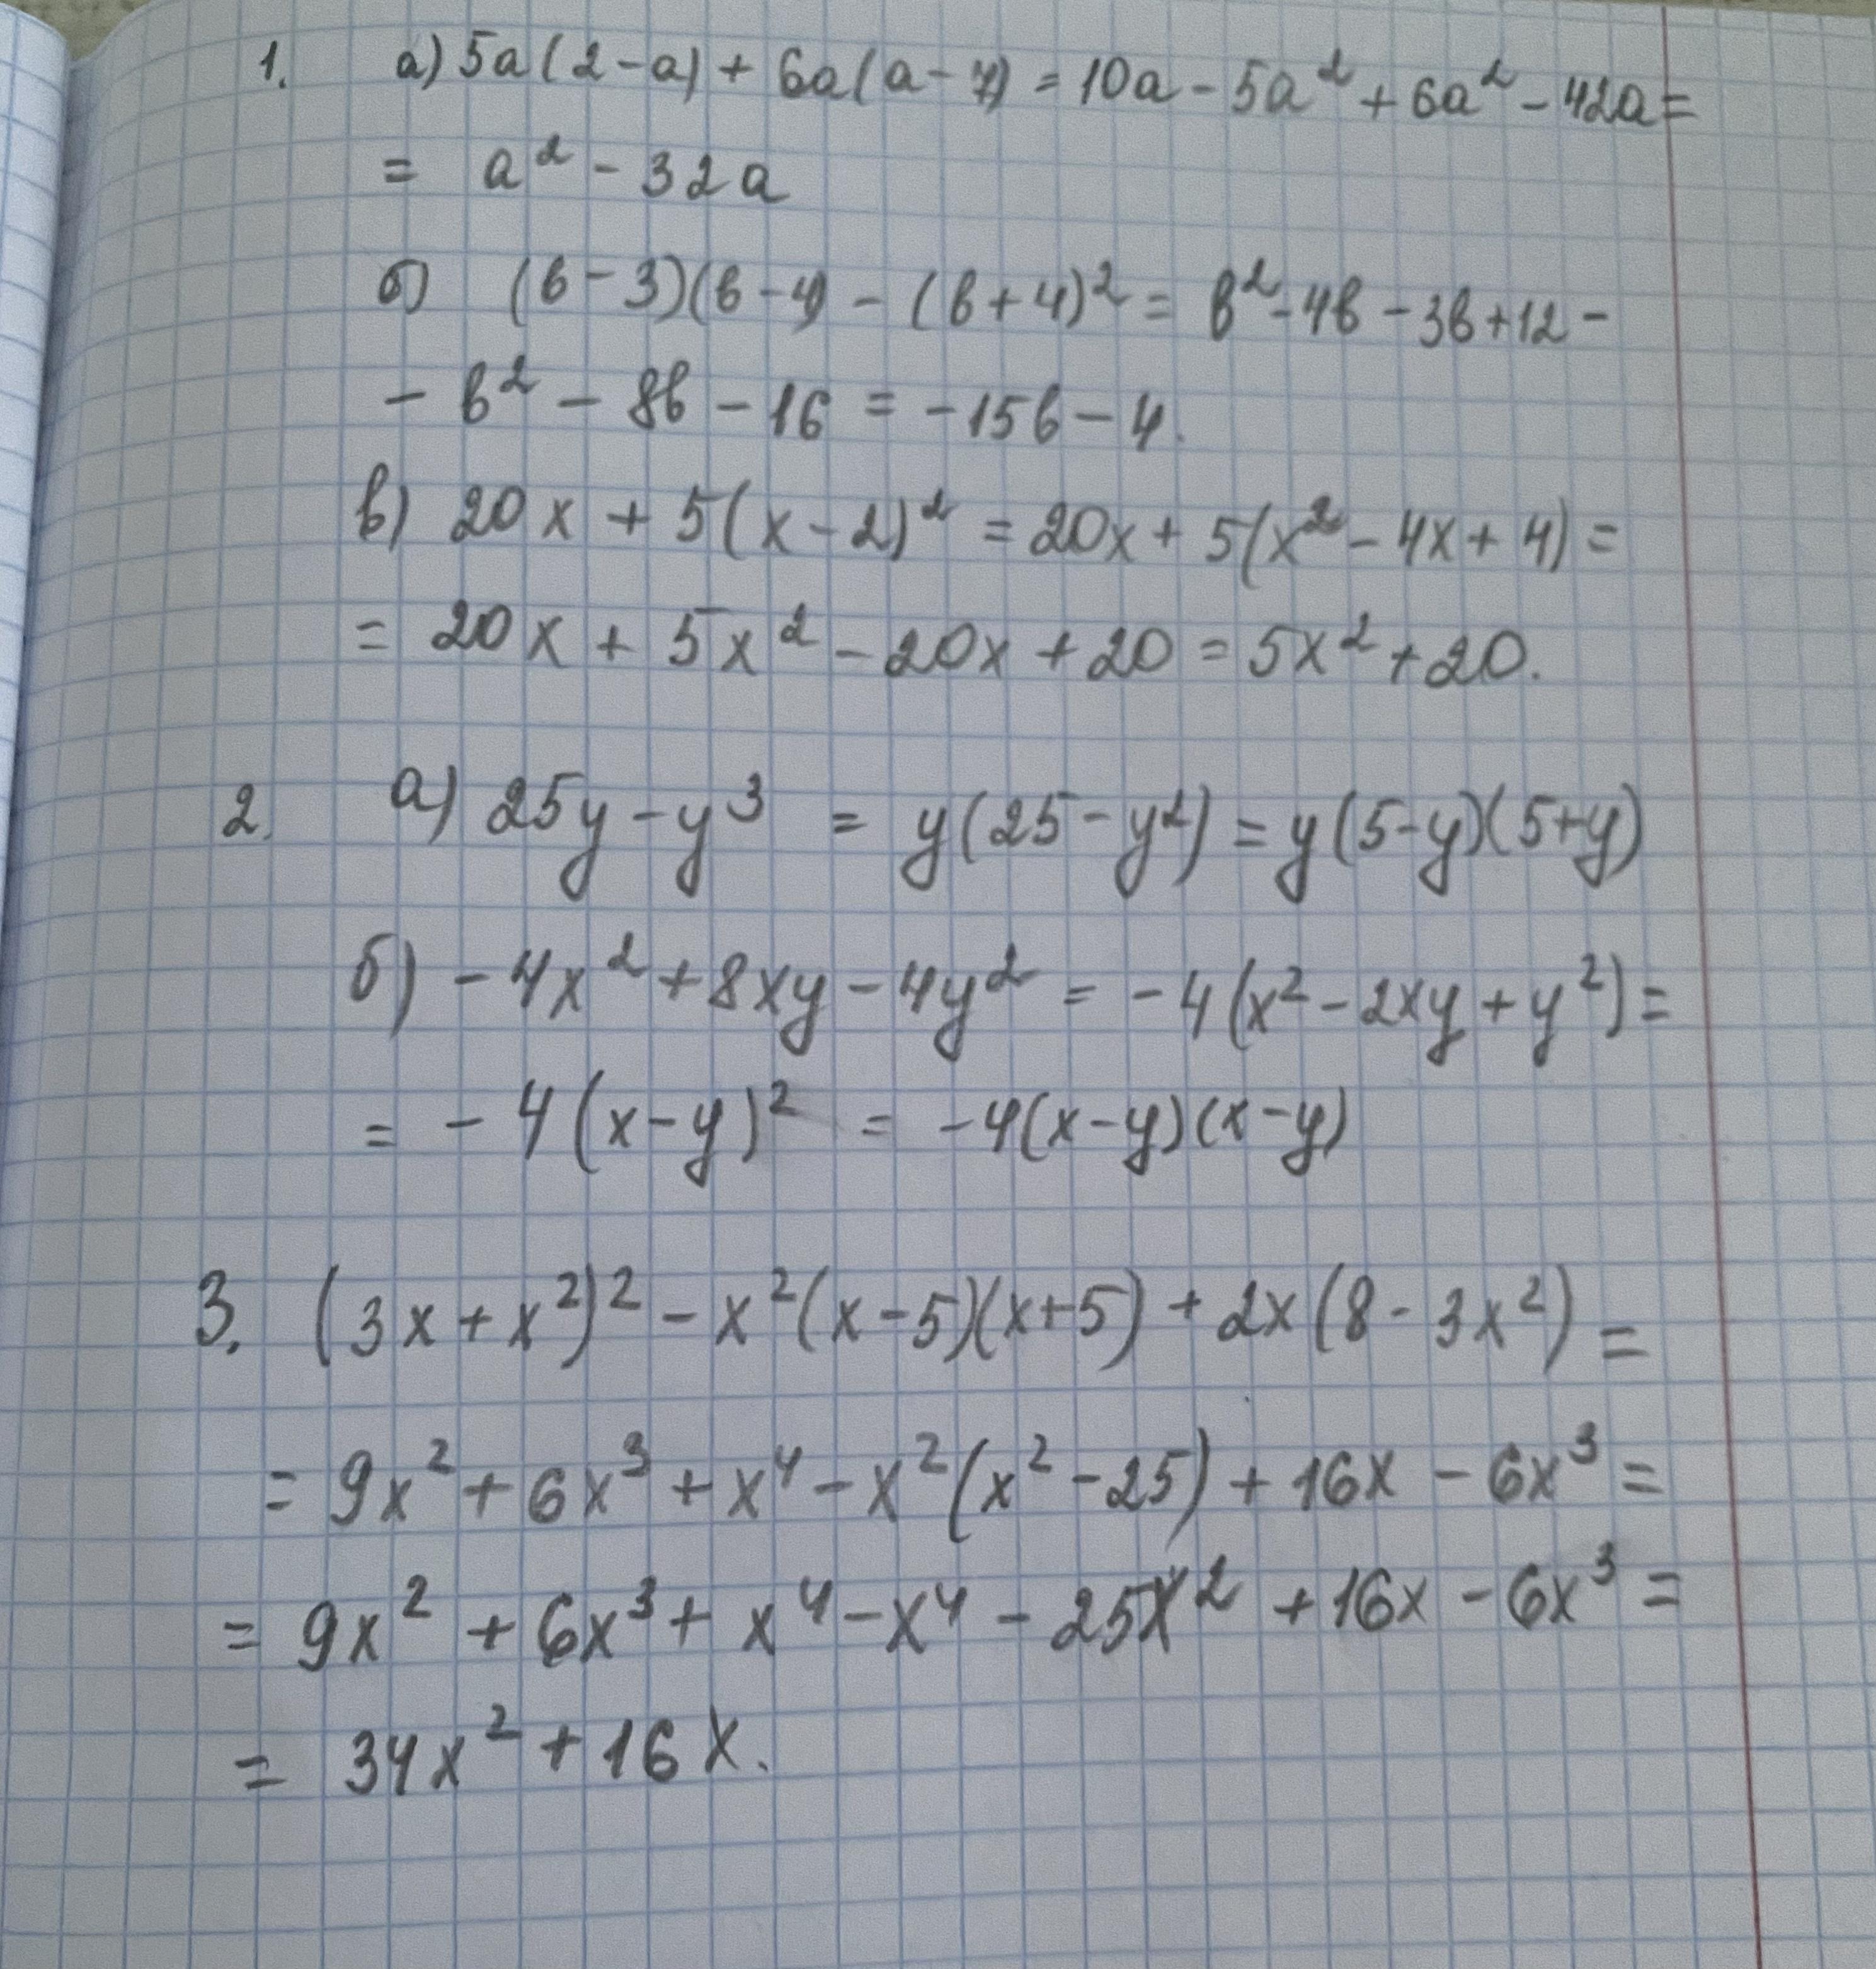 1. а) 5a(2-a) + 6a(a-7) = 10a - 5a² + 6a² - 42a =
= a² - 32a
б) (b-3)(b-4) - (b+4)² = b² - 4b - 3b + 12 -
- b² - 8b - 16 = -15b - 4.
в) 20x + 5(x-2)² = 20x + 5(x² - 4x + 4) =
= 20x + 5x² - 20x + 20 = 5x² + 20.
2. а) 25y - y³ = y(25 - y²) = y(5-y)(5+y)
б) -4x² + 8xy - 4y² = -4(x² - 2xy + y²) =
= -4(x-y)² = -4(x-y)(x-y)
3. (3x + x²)² - x²(x-5)(x+5) + 2x(8 - 3x²) =
= 9x² + 6x³ + x⁴ - x²(x² - 25) + 16x - 6x³ =
= 9x² + 6x³ + x⁴ - x⁴ - 25x² + 16x - 6x³ =
= 34x² + 16x.